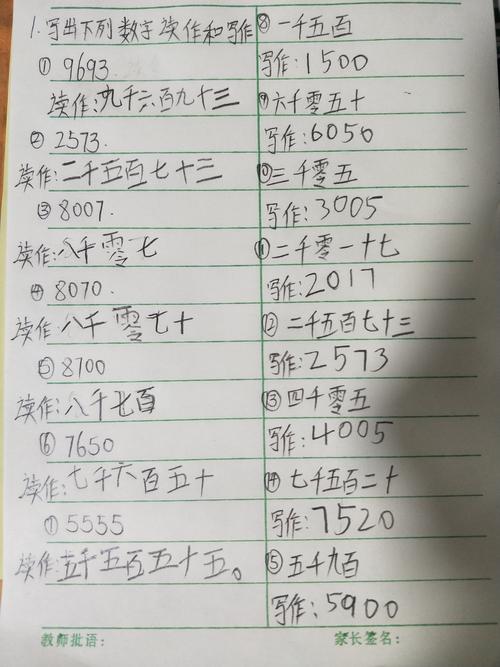 1.写出下列数字读作和写作
① 9693
读作:九千六百九十三
② 2573.
读作:二千五百七十三
③ 8007.
读作:八千零七
④ 8070.
读作:八千零七十
⑤ 8700
读作:八千七百
⑥ 7650
读作:七千六百五十
⑦ 5555
读作:五千五百五十五。
⑧ 一千五百
写作:1500
⑨ 六千零五十
写作:6050
⑩ 三千零五
写作:3005
⑪ 二千零一十七
写作:2017
⑫ 二千五百七十三
写作:2573
⑬ 四千零五
写作:4005
⑭ 七千五百二十
写作:7520
⑮ 五千九百
写作:5900
教师批语:
家长签名: